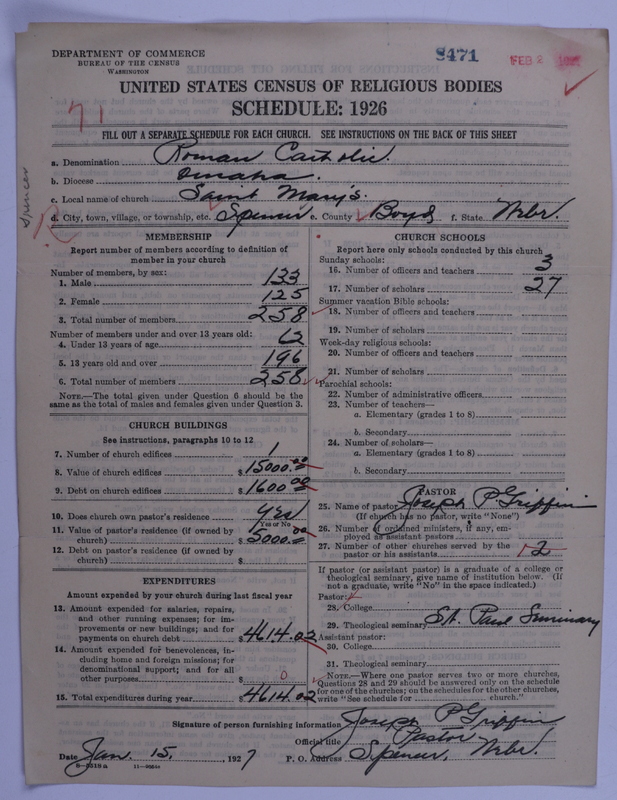 DEPARTMENT OF COMMERCE
BUREAU OF THE CENSUS
WASHINGTON
8471
FEB 2
UNITED STATES CENSUS OF RELIGIOUS BODIES
SCHEDULE: 1926
71
FILL OUT A SEPARATE SCHEDULE FOR EACH CHURCH. SEE INSTRUCTIONS ON THE BACK OF THIS SHEET
a. Denomination Roman Catholic.
b. Diocese Omaha.
c. Local name of church Saint Mary's.
d. City, town, village, or township, etc. Spencer e. County Boyd f. State Nebr.
Spencer
MEMBERSHIP
Report number of members according to definition of
member in your church
Number of members, by sex:
1. Male 133
2. Female 125
3. Total number of members 258
Number of members under and over 13 years old:
4. Under 13 years of age 62
5. 13 years old and over 196
6. Total number of members 258
NOTE.—The total given under Question 6 should be
the same as the total of males and females given under Question 3.
CHURCH BUILDINGS
See instructions, paragraphs 10 to 12
7. Number of church edifices 1
8. Value of church edifices $ 15000.00
9. Debt on church edifices $ 1600.00
10. Does church own pastor's residence Yes
Yes or No
11. Value of pastor's residence (if owned by
church) $ 5000.00
12. Debt on pastor's residence (if owned by
church) $
EXPENDITURES
Amount expended by your church during last fiscal year
13. Amount expended for salaries, repairs,
and other running expenses; for im-
provements or new buildings; and for
payments on church debt $ 4614.02
14. Amount expended for benevolences, in-
cluding home and foreign missions; for
denominational support; and for all
other purposes $ 0
15. Total expenditures during year $ 4614.02
CHURCH SCHOOLS
Report here only schools conducted by this church
Sunday schools:
16. Number of officers and teachers 3
17. Number of scholars 27
Summer vacation Bible schools:
18. Number of officers and teachers
19. Number of scholars
Week-day religious schools:
20. Number of officers and teachers
21. Number of scholars
Parochial schools:
22. Number of administrative officers
23. Number of teachers—
a. Elementary (grades 1 to 8)
b. Secondary
24. Number of scholars—
a. Elementary (grades 1 to 8)
b. Secondary
PASTOR
25. Name of pastor Joseph P Griffin
(If church has no pastor, write "None")
26. Number of ordained ministers, if any, em-
ployed as assistant pastors
27. Number of other churches served by the
pastor or his assistants 2
If pastor (or assistant pastor) is a graduate of a college or
theological seminary, give name of institution below. (If
not a graduate, write "No" in the space indicated.)
Pastor:
28. College
29. Theological seminary St. Paul Seminary
Assistant pastor:
30. College
31. Theological seminary
NOTE.—Where one pastor serves two or more churches,
Questions 28 and 29 should be answered only on the schedule
for one of the churches; on the schedules for the other churches,
write "See schedule for church."
Signature of person furnishing information Joseph P Griffin
Official title Pastor
Date Jan. 15, 1927 P. O. Address Spencer, Nebr.